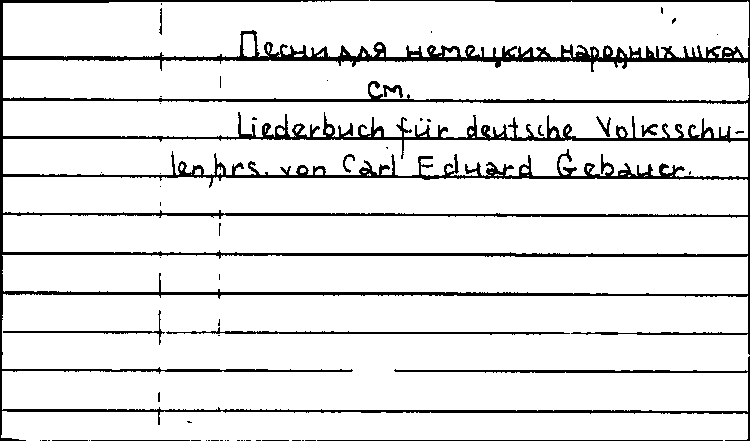 Песни для немецких народных школ
см.
Liederbuch für deutsche Volksschu-
len, hrs. von Carl Eduard Gebauer.